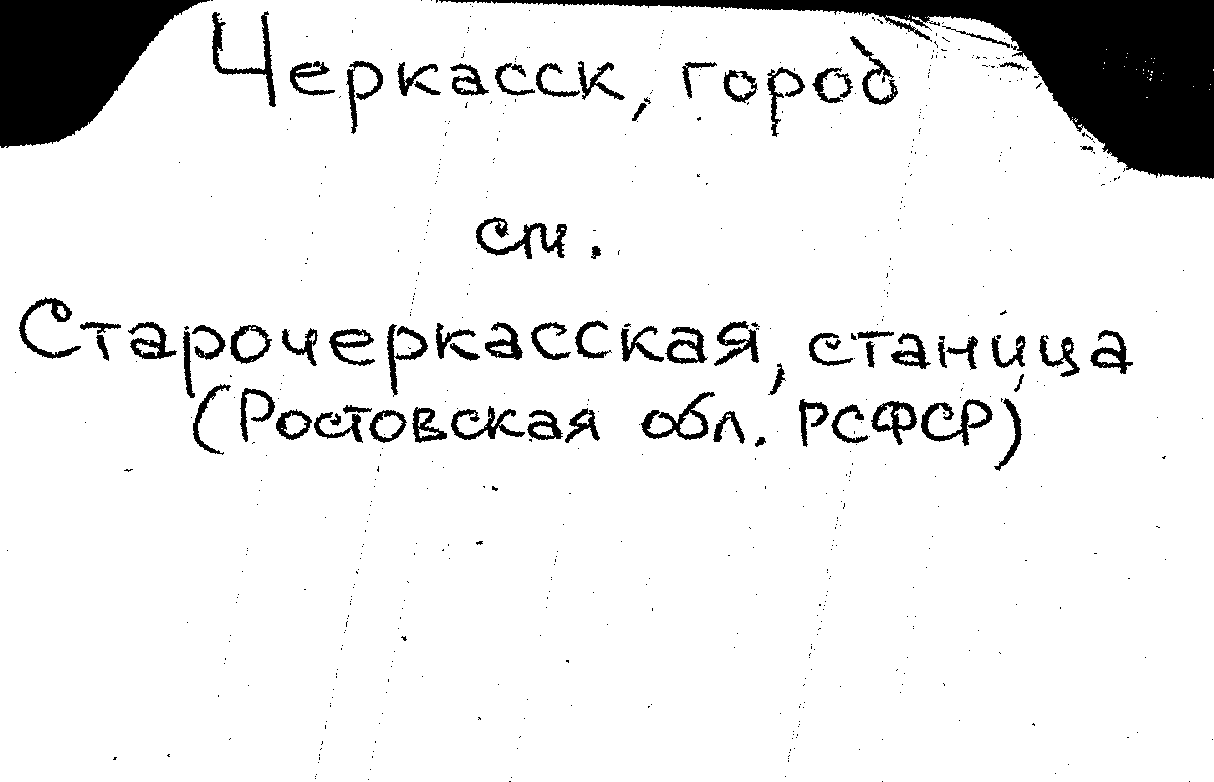 Черкасск, город
см.
Старочеркасская, станица
(Ростовская обл. РСФСР)